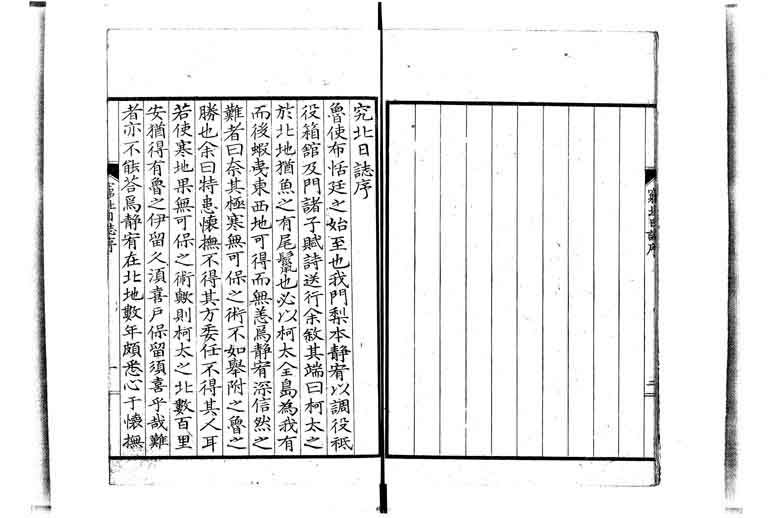 究北日誌序
魯使布恬廷之始至也我門梨本静宥以調役祗
役箱舘及門諸子賦詩送行余敘其端曰柯太之
於北地猶魚之有尾鬣也必以柯太全島為我有
而後蝦夷東西地可得而無恙焉静宥深信然之
難者曰奈其極寒無可保之術不如舉附之魯之
勝也余曰特患懷撫不得其方委任不得其人耳
若使寒地果無可保之術歟則柯太之北數百里
安猶得有魯之伊留久須喜戸保留須喜乎哉難
者亦不能荅焉静宥在北地數年頗悉心于懷撫
窮北日誌序
一
窮北日誌序
二